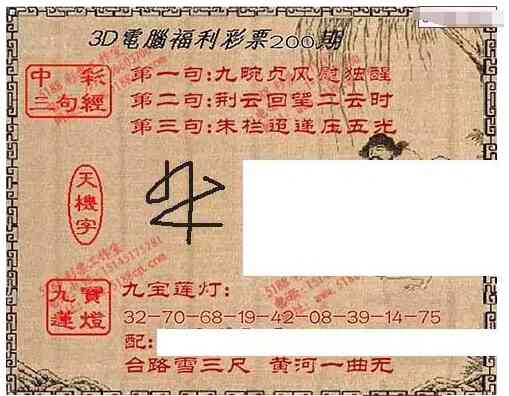 3D電腦福利彩票200期
中彩
三句經
第一句:九畹贞风慰独醒
第二句:荆云回望二云时
第三句:朱栏迢递压五光
天機字
九寶
蓮燈
九宝莲灯:
32-70-68-19-42-08-39-14-75
配:
台路雪三尺 黄河一曲无